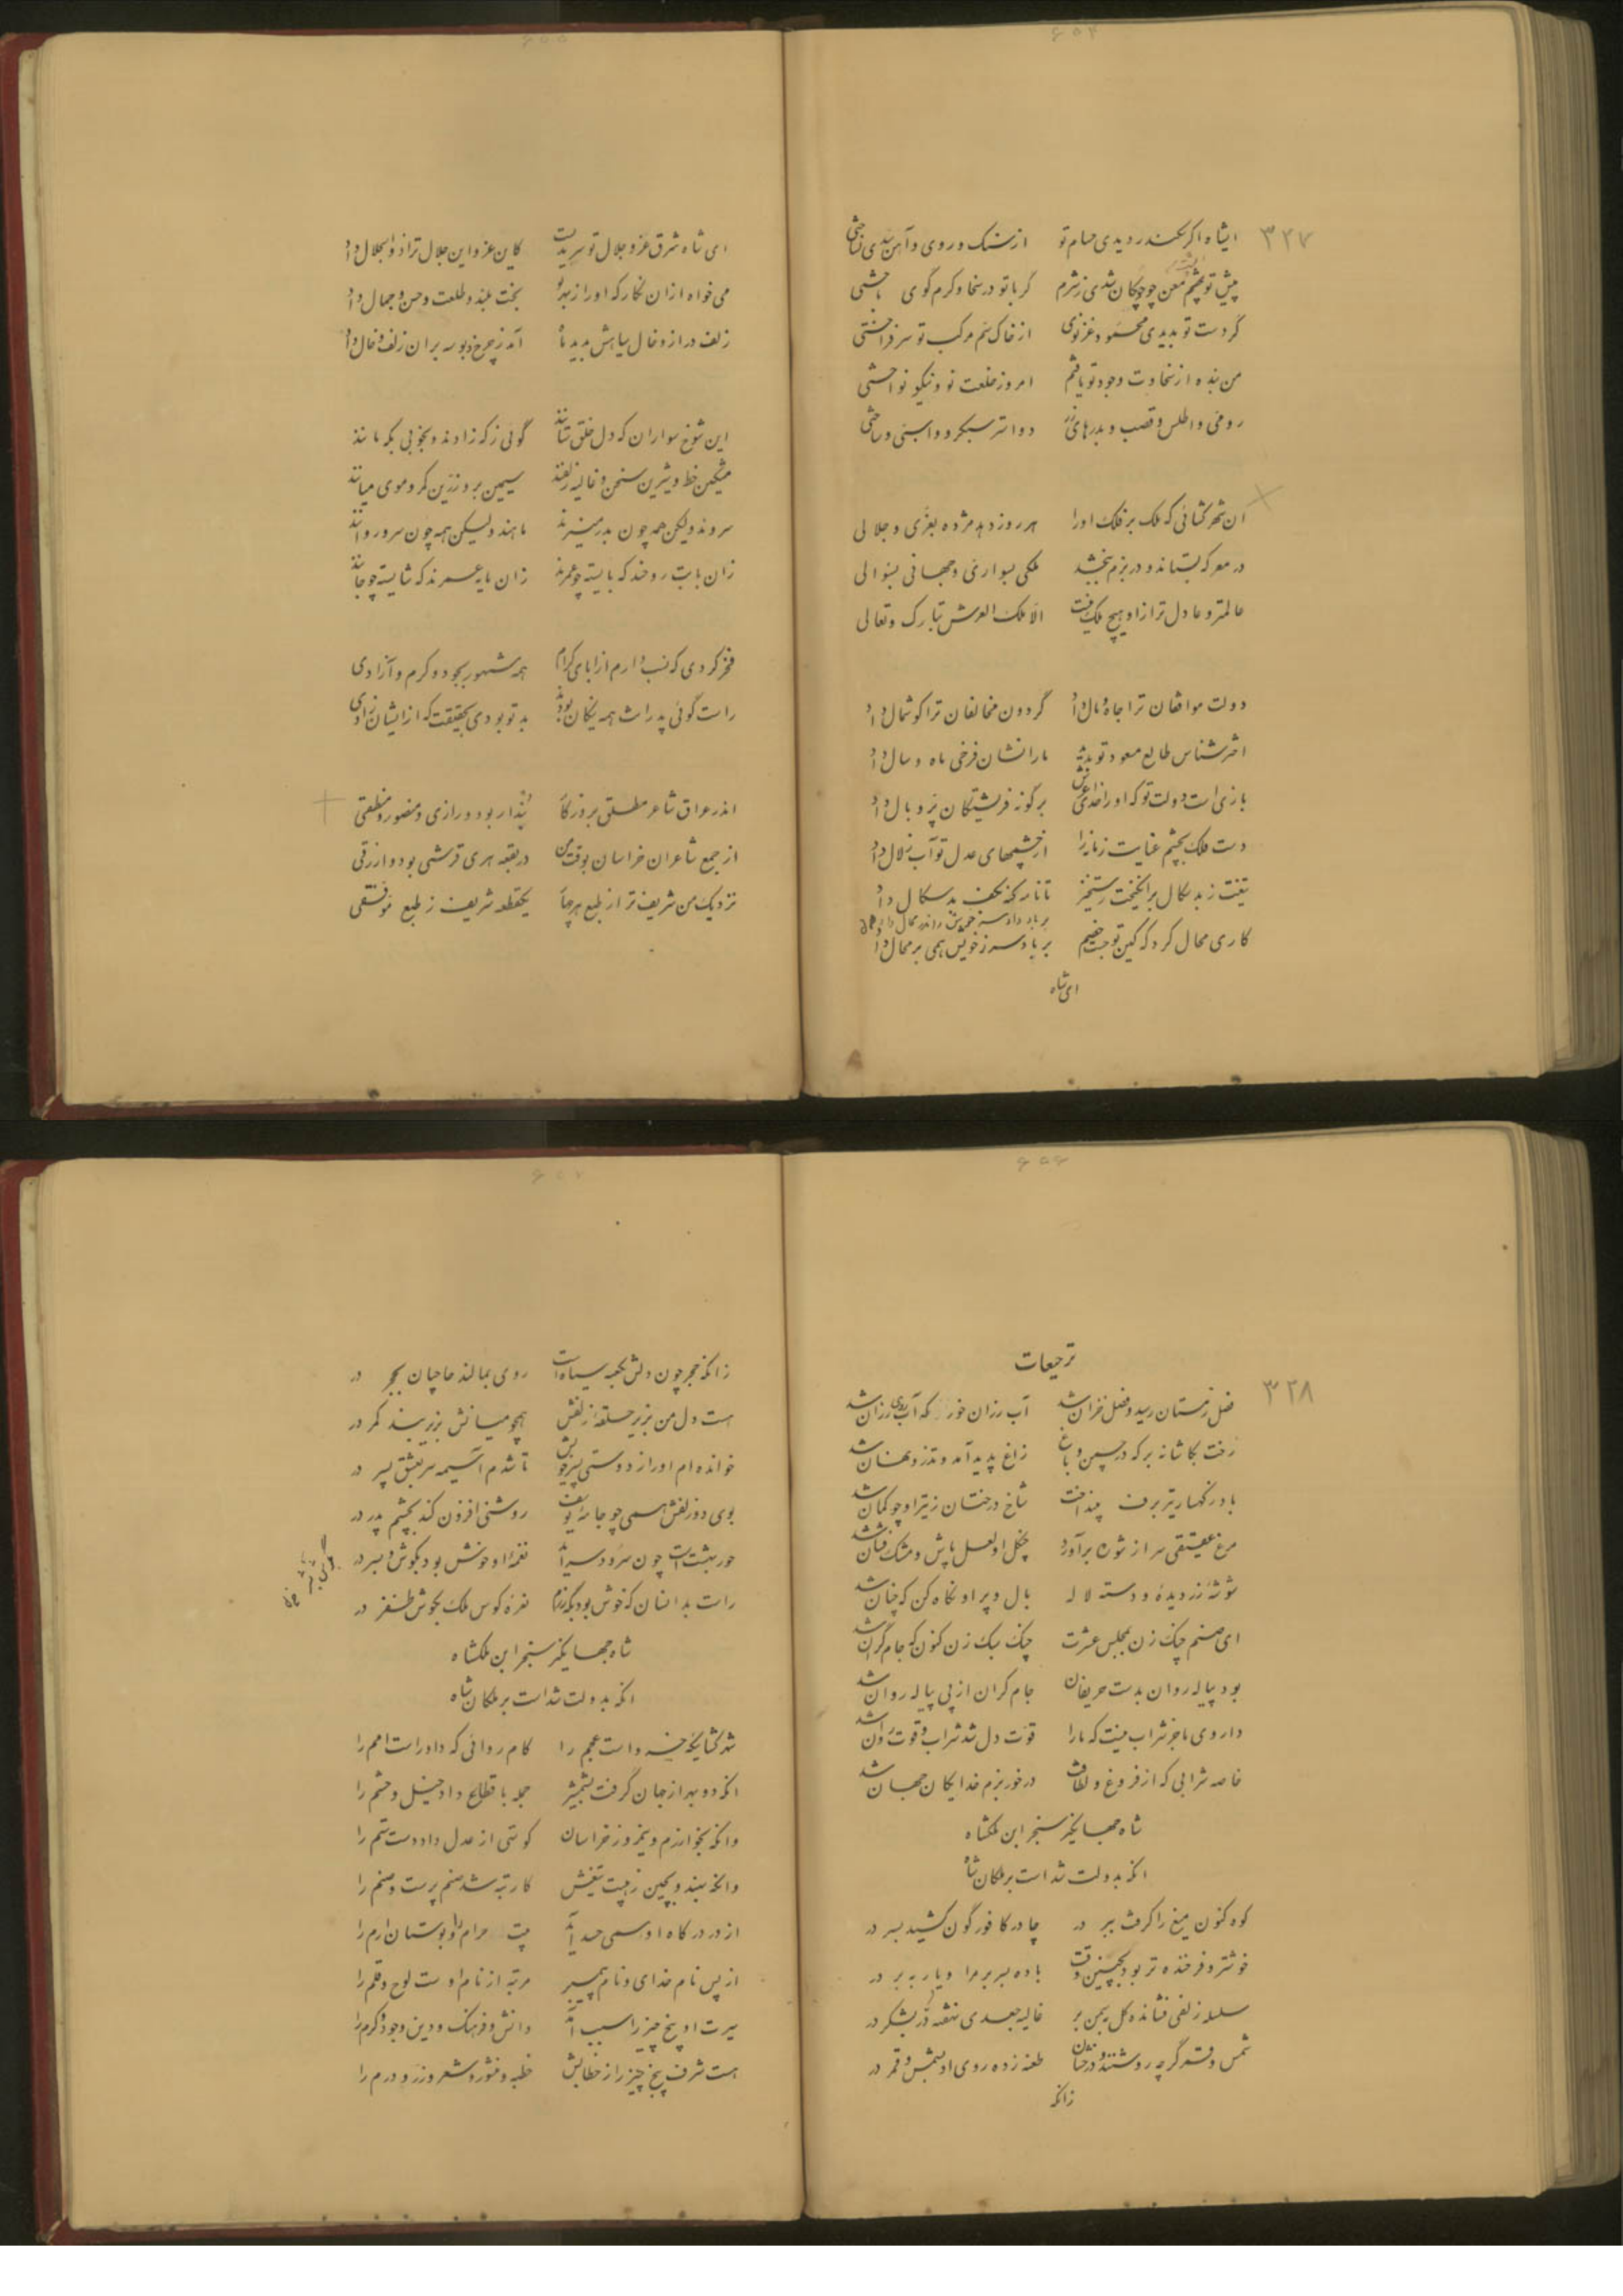 ۳۲۷
ایشاه اگر سکندر دیدی حسام تو از سنگ و روی و آهن سدی نساختی
پیش تو چشم معن چو چوکان شدی ز شرم گر با تو در سخا و کرم گوی باختی
گر دست تو بدیدی محمود غزنوی از خاک سم مرکب تو سر فراختی
من بنده از سخاوت وجود تو یافتم امروز خلعت نو و نیکو نواختی
رومی و اطلس و قصب و بدرهای زر دو استر سبکرو و اسبی و ساختی
ان شهر کشائی که ملک بر فلک اورا هر روز دهد مژده بعزی و جلالی
در معرکه بستاند و در بزم ببخشد ملکی بسواری و جهانی بسؤالی
عالمتر و عادل تر ازاو هیچ ملک نیست الا ملک العرش تبارک و تعالی
دولت موافقان ترا جاه و مال داد گردون مخالفان ترا کوشمال داد
اختر شناس طالع مسعود تو بدید مارا نشان فرخی ماه و سال داد
بازی است دولت تو که اورا خدای عرش بر گونه فرشتگان پر و بال داد
دست ملک بچشم عنایت زمانه را از چشمهای عدل تو آب زلال داد
تیغت ز بد سکال برانکیخت رستخیز
کاری محال کرد که کین تو جست خصیم بر باد سر ز خویش همی بر محال داد
ای شاه
ای شاه شرق عز و جلال تو سرمدیست کاین عز و این جلال ترا ذوالجلال داد
می خواه ازان نکار که اورا ز بهر تو بخت بلند و طلعت و حسن و جمال داد
زلف دراز و خال سیاهش بدید ماه آمد ز چرخ و بوسه بران زلف و خال داد
این شوخ سواران که دل خلق ستانند گوئی زکه زادند و بخوبی بکه مانند
مشکین خط و شیرین سخن و غالیه زلفند سیمین بر و زرین کمر و موی میانند
سروند ولیکن همه چون بدر منیرند ماهند ولیکن همه چون سرو روانند
فخر کردی که نسب دارم از ابای کرام همه مشهور بجود و کرم و آزادی
راست گوئی پدرانت همه نیکان بودند بد تو بودی بحقیقت که ازایشان زادی
اندر عراق شاعر مطلق بروزکار پندار بود و رازی و منصور منطقی
از جمع شاعران خراسان بوقت من در بقعه هری قرشی بود و ازرقی
نزدیک من شریف تر از طبع هر چهار یکقطعه شریف ز طبع موفقی
ترجیعات
۳۲۸
فصل زمستان رسید و فصل خزان شد آب رزان خور که آب روی رزان شد
رخت بکاشانه بر که در چمن و باغ زاغ پدید آمد و تذرو نهان شد
باد ز کهسار تیر برف بینداخت شاخ درختان ز تیر او چو کمان شد
مرغ عقیقی سر از شوره برآورد چنگل او لعل پاش و مشک فشان شد
شوشه زر دیده و دسته لاله بال و پر او نگاه کن که چنان شد
ای صنم چنک زن بمجلس عشرت چنک سبک زن کنون که جام گران شد
بود پیاله روان بدست حریفان جام کران از پی پیاله روان شد
داروی ما جز شراب نیست که مارا قوت دل شد شراب و قوت روان شد
خاصه شرابی که از فروغ و لطافت در خور بزم خدایکان جهان شد
شاه جهانگیر سنجر ابن ملکشاه
انکه بدولت شد است بر ملکان شاه
کوه کنون میغ را کرفت ببر در چادر کافور گون کشید بسر در
خوشتر و فرخنده تر بود بچنین وقت باده بسر بر مرا و یار ببر در
سلسله زلفی فشانده کل بسمن بر غالیه جعدی نهفته در بشکر در
شمس و قمر گرچه روشنند و درخشان طعنه زده روی او بشمس و قمر در
زانکه
زانکه حجر چون دلش بکعبه سیاه است روی بمالند حاجیان بحجر در
هست دل من بزیر حلقه زلفش همچو میانش بزیر بند کمر در
خوانده ام اورا ز دوستی پسر خویش تا شدم آسیمه سر بعشق پسر در
بوی دو زلفش همی چو جامه یوسف روشنی افزون کند بچشم پدر در
حور بهشت است چون سرود سراید نغمه او خوش بود بکوش بسر در
راست بدانسان که خوش بود بکه رزم نعره کوس ملک بکوش ظفر در
شاه جهانگیر سنجر ابن ملکشاه
انکه بدولت شد است بر ملکان شاه
شهر کشائیکه خسرو است عجم را کام روائی که داور است امم را
انکه دو بهر از جهان گرفت بشمشیر جمله باقطاع داد خیل و حشم را
وانکه بخوارزم و نیمروز و خراسان کوشی از عدل داد دست ستم را
وانکه بهند و بچین ز هیبت تیغش کار تبه شد صنم پرست و صنم را
از پس نام خدای و نام پیمبر مرتبه از نام اوست لوح و قلم را
سیرت او پنج چیز را سبب آمد دانش و فرهنک و دین وجود و کرم را
هست شرف پنج چیز را ز خطابش خطبه و منشور و شعر و زر و درم را